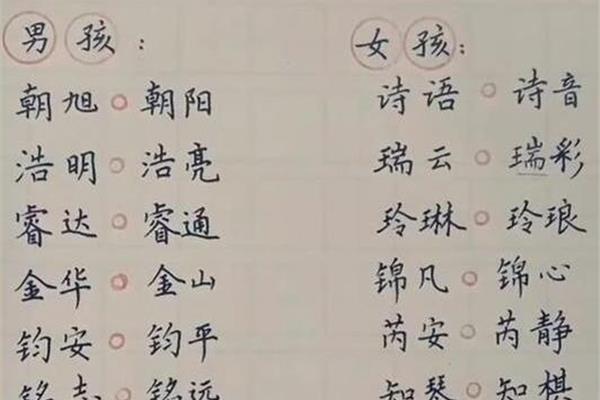 男孩：
朝旭○朝阳
浩明○浩亮
睿达○睿通
金华○金山
钧安○钧平
铭志○铭远
女孩：
诗语○诗音
瑞云○瑞彩
玲琳○玲琅
锦凡○锦心
芮安○芮静
知琴○知棋